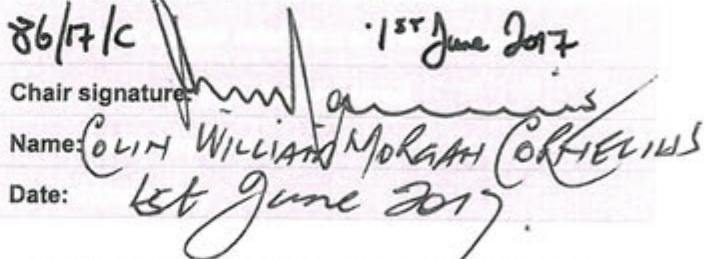 86/17/C 1st June 2017
Chair signature:
Name: COLIN WILLIAM MORGAN CORNELIUS
Date: 1st June 2017.